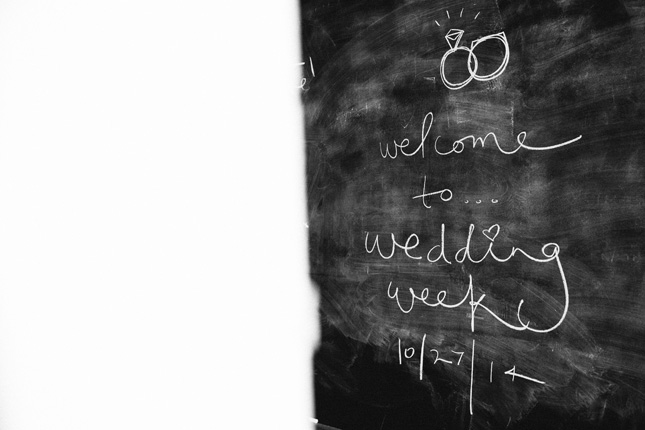 welcome
to...
wedding
week
10/27/14